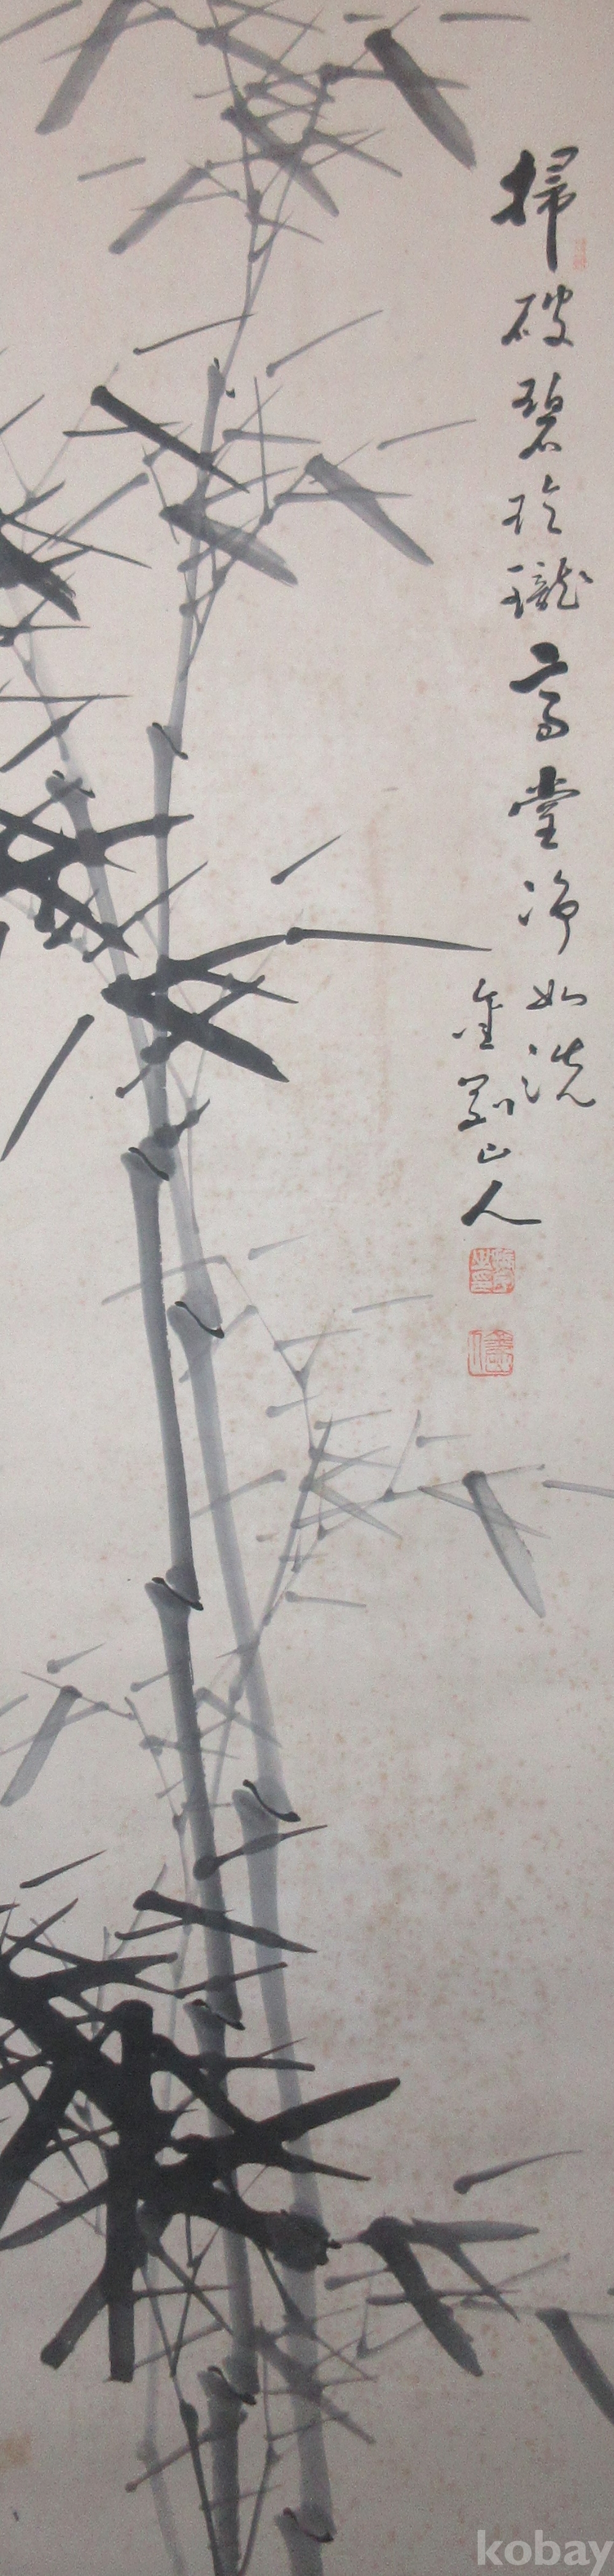 掃破碧玲瓏高堂净如洗
金剛山人
kobay